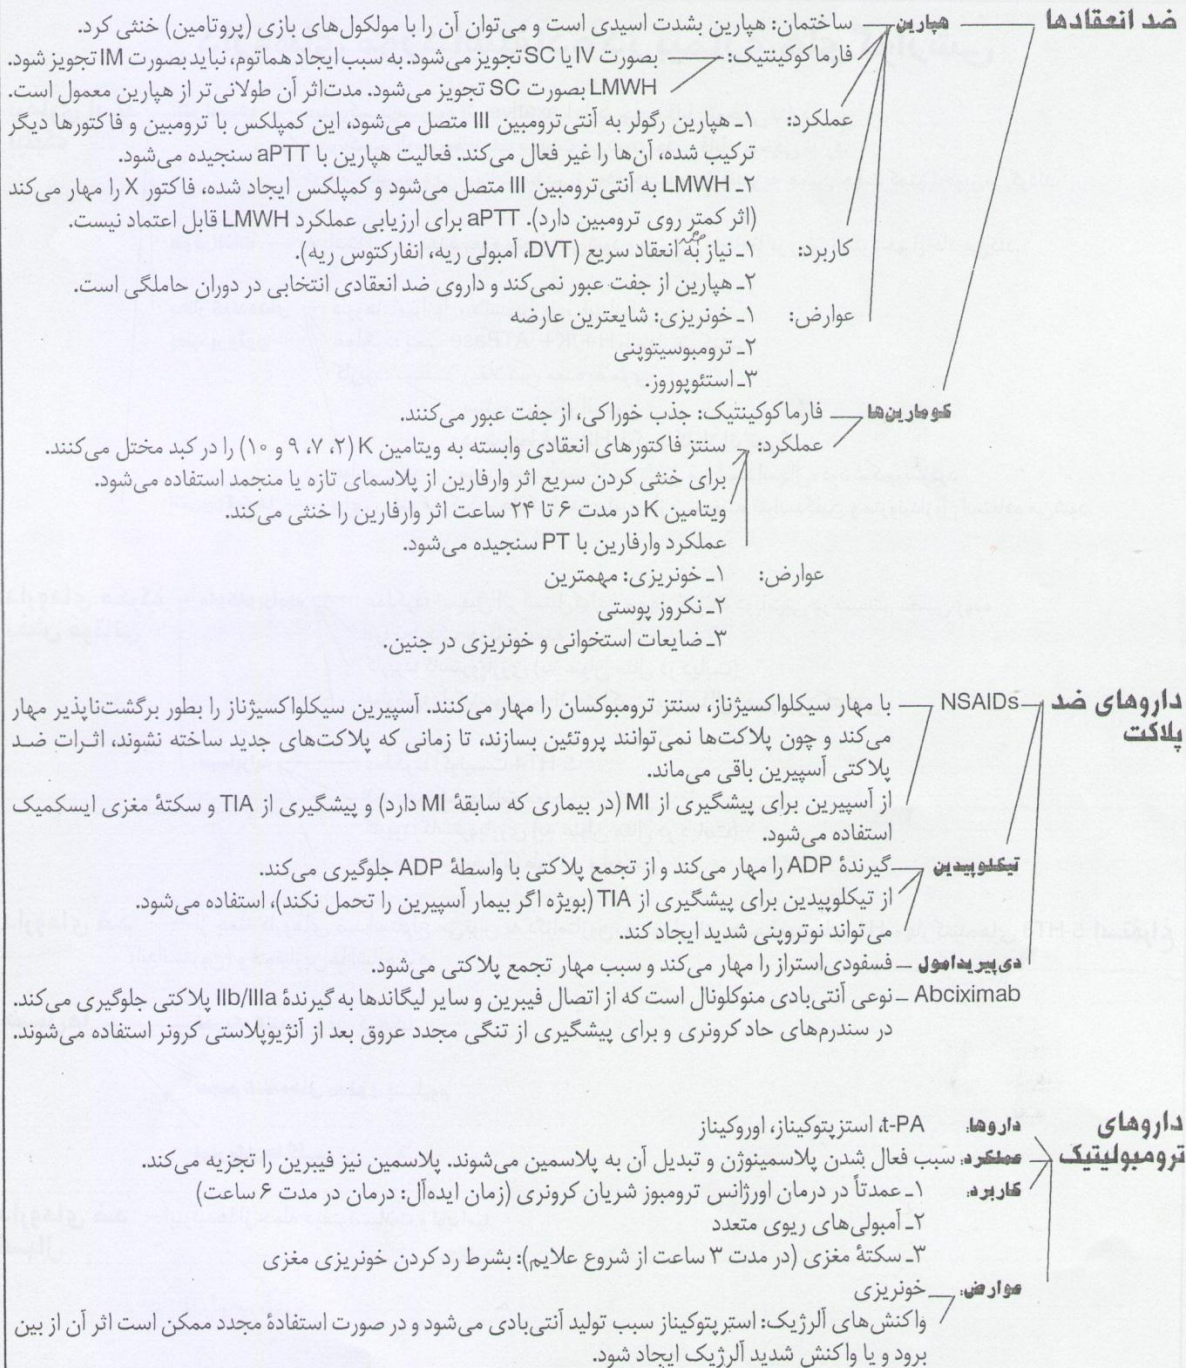 ضد انعقادها
هپارین
ساختمان: هپارین بشدت اسیدی است و می‌توان آن را با مولکول‌های بازی (پروتامین) خنثی کرد.
فارماکوکینتیک: بصورت IV یا SC تجویز می‌شود. به سبب ایجاد هماتوم، نباید بصورت IM تجویز شود.
LMWH بصورت SC تجویز می‌شود. مدت‌اثر آن طولانی‌تر از هپارین معمول است.
عملکرد: ۱ـ هپارین رگولر به آنتی‌ترومبین III متصل می‌شود، این کمپلکس با ترومبین و فاکتورها دیگر
ترکیب شده، آن‌ها را غیر فعال می‌کند. فعالیت هپارین با aPTT سنجیده می‌شود.
۲ـ LMWH به آنتی‌ترومبین III متصل می‌شود و کمپلکس ایجاد شده، فاکتور X را مهار می‌کند
(اثر کمتر روی ترومبین دارد). aPTT برای ارزیابی عملکرد LMWH قابل اعتماد نیست.
کاربرد: ۱ـ نیاز به ضد انعقاد سریع (DVT، آمبولی ریه، انفارکتوس ریه).
۲ـ هپارین از جفت عبور نمی‌کند و داروی ضد انعقادی انتخابی در دوران حاملگی است.
عوارض: ۱ـ خونریزی: شایعترین عارضه
۲ـ ترومبوسیتوپنی
۳ـ استئوپوروز.
کومارین‌ها
فارماکوکینتیک: جذب خوراکی، از جفت عبور می‌کنند.
عملکرد: سنتز فاکتورهای انعقادی وابسته به ویتامین K (۲، ۷، ۹ و ۱۰) را در کبد مختل می‌کنند.
برای خنثی کردن سریع اثر وارفارین از پلاسمای تازه یا منجمد استفاده می‌شود.
ویتامین K در مدت ۶ تا ۲۴ ساعت اثر وارفارین را خنثی می‌کند.
عملکرد وارفارین با PT سنجیده می‌شود.
عوارض: ۱ـ خونریزی: مهمترین
۲ـ نکروز پوستی
۳ـ ضایعات استخوانی و خونریزی در جنین.
داروهای ضد
پلاکت
NSAIDs
با مهار سیکلواکسیژناز، سنتز ترومبوکسان را مهار می‌کنند. آسپیرین سیکلواکسیژناز را بطور برگشت‌ناپذیر مهار
می‌کند و چون پلاکت‌ها نمی‌توانند پروتئین بسازند، تا زمانی که پلاکت‌های جدید ساخته نشوند، اثرات ضد
پلاکتی آسپیرین باقی می‌ماند.
از آسپیرین برای پیشگیری از MI (در بیماری که سابقهٔ MI دارد) و پیشگیری از TIA و سکتهٔ مغزی ایسکمیک
استفاده می‌شود.
تیکلوپیدین
گیرندهٔ ADP را مهار می‌کند و از تجمع پلاکتی با واسطهٔ ADP جلوگیری می‌کند.
از تیکلوپیدین برای پیشگیری از TIA (بویژه اگر بیمار آسپیرین را تحمل نکند)، استفاده می‌شود.
می‌تواند نوتروپنی شدید ایجاد کند.
دی‌پیریدامول
فسفودی‌استراز را مهار می‌کند و سبب مهار تجمع پلاکتی می‌شود.
Abciximab
نوعی آنتی‌بادی منوکلونال است که از اتصال فیبرین و سایر لیگاندها به گیرندهٔ IIb/IIIa پلاکتی جلوگیری می‌کند.
در سندرم‌های حاد کرونری و برای پیشگیری از تنگی مجدد عروق بعد از آنژیوپلاستی کرونر استفاده می‌شوند.
داروهای
ترومبولیتیک
داروها: t-PA، استرپتوکیناز، اوروکیناز
عملکرد: سبب فعال شدن پلاسمینوژن و تبدیل آن به پلاسمین می‌شوند. پلاسمین نیز فیبرین را تجزیه می‌کند.
کاربرد: ۱ـ عمدتاً در درمان اورژانس ترومبوز شریان کرونری (زمان ایده‌آل: درمان در مدت ۶ ساعت)
۲ـ آمبولی‌های ریوی متعدد
۳ـ سکتهٔ مغزی (در مدت ۳ ساعت از شروع علایم): بشرط رد کردن خونریزی مغزی
عوارض: خونریزی
واکنش‌های آلرژیک: استرپتوکیناز سبب تولید آنتی‌بادی می‌شود و در صورت استفادهٔ مجدد ممکن است اثر آن از بین
برود و یا واکنش شدید آلرژیک ایجاد شود.